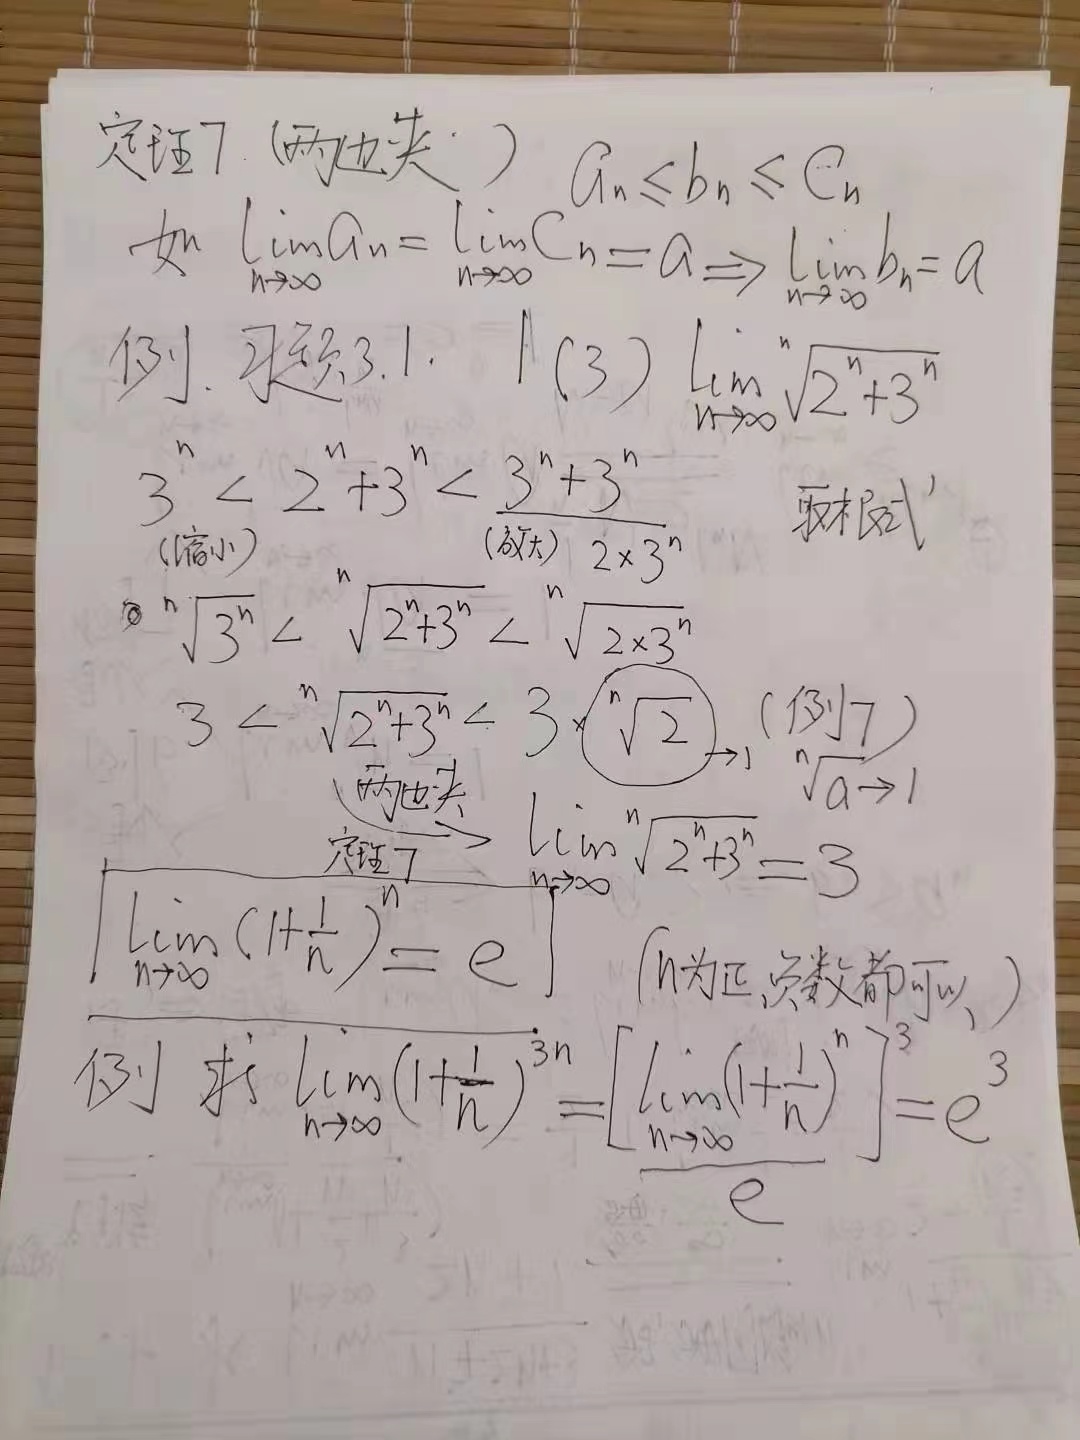 定理7 (两边夹) aₙ ≤ bₙ ≤ Cₙ
如 lim_{n→∞} aₙ = lim_{n→∞} Cₙ = a ⇒ lim_{n→∞} bₙ = a
例. 习题3.1. 1(3) lim_{n→∞} ⁿ√(2ⁿ+3ⁿ)
3ⁿ < 2ⁿ+3ⁿ < 3ⁿ+3ⁿ 取根式
(缩小) (放大) 2×3ⁿ
ⁿ√(3ⁿ) < ⁿ√(2ⁿ+3ⁿ) < ⁿ√(2×3ⁿ)
3 < ⁿ√(2ⁿ+3ⁿ) < 3·ⁿ√2 →1 (例7)
ⁿ√a → 1
两边夹
定理7 lim_{n→∞} ⁿ√(2ⁿ+3ⁿ) = 3
lim_{n→∞} (1+1/n)ⁿ = e (n为正、负数都可以)
例 求 lim_{n→∞} (1+1/n)³ⁿ = [lim_{n→∞} (1+1/n)ⁿ]³ = e³
e